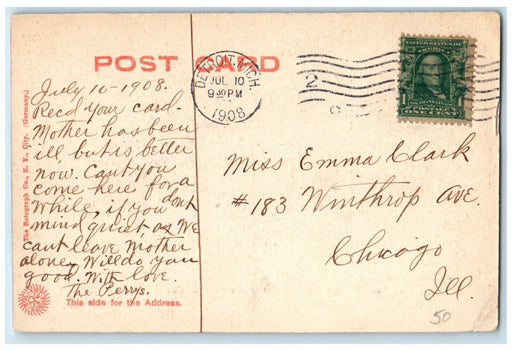 POST CARD
DETROIT, MICH.
JUL 10
9 30 PM
1908
2
UNITED STATES OF AMERICA
FRANKLIN
POSTAGE
1 ONE CENT 1
July 10-1908.
Recd your card.
Mother has been
ill, but is better
now. Cant you
come here for a
while, if you dont
mind quiet as We
cant leave Mother
alone. Will do you
good. With love.
The Perrys.
Miss Emma Clark
#183 Winthrop Ave.
Chicago
Ill.
50
The Rotograph Co., N. Y., City. (Germany.)
This side for the Address.